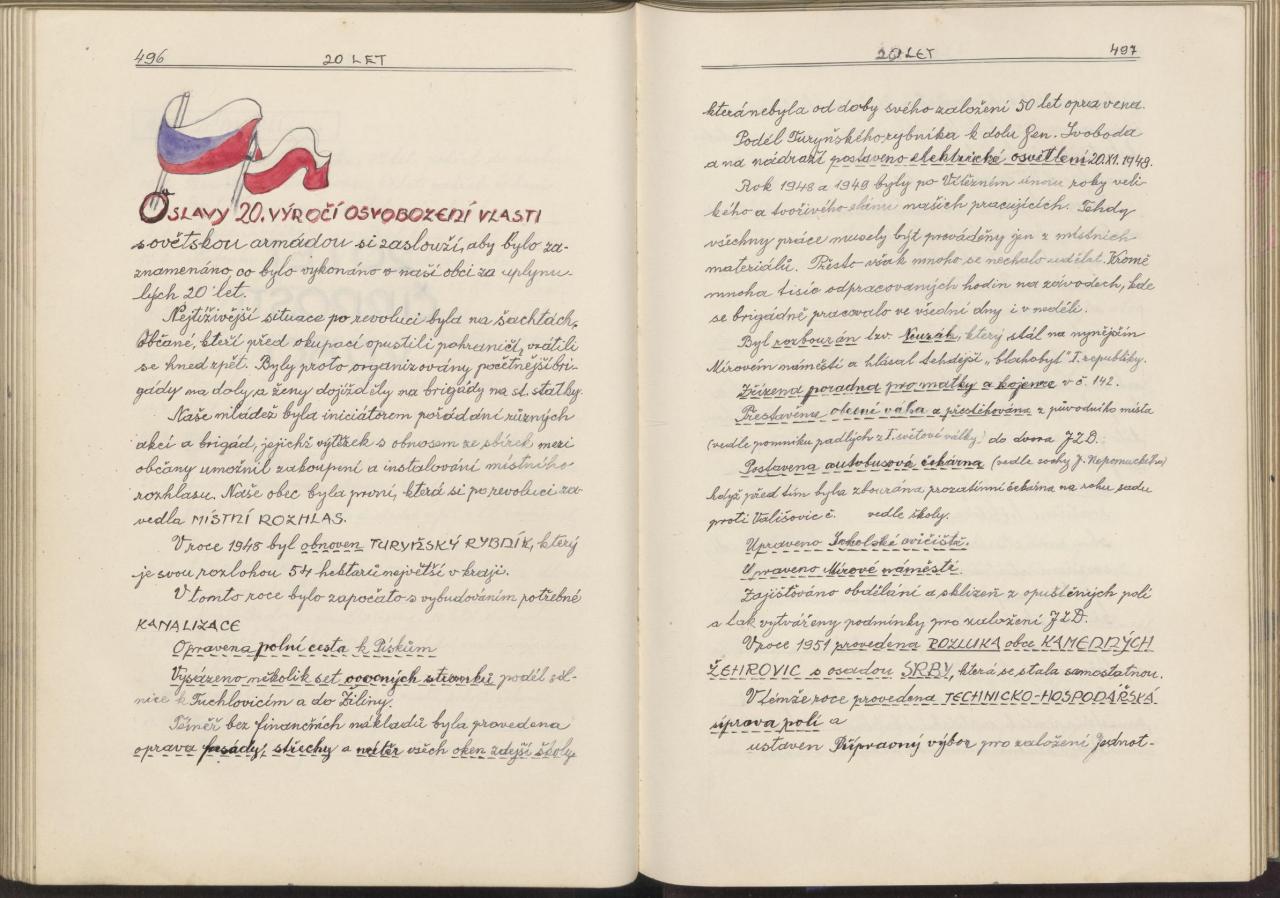 496
20 LET
OSLAVY 20. VÝROČÍ OSVOBOZENÍ VLASTI
sovětskou armádou si zaslouží, aby bylo za-
znamenáno, co bylo vykonáno v naší obci za uplynu-
lých 20 let.
Nejtíživější situace po revoluci byla na šachtách.
Občané, kteří před okupací opustili pohraničí, vrátili
se hned zpět. Byly proto organizovány početnější bri-
gády na doly a ženy dojížděly na brigády na st. statky.
Naše mládež byla iniciátorem pořádání různých
akcí a brigád, jejichž výtěžek s obnosem ze sbírek mezi
občany umožnil zakoupení a instalování místního
rozhlasu. Naše obec byla první, která si po revoluci za-
vedla MÍSTNÍ ROZHLAS.
V roce 1948 byl obnoven TURYŇSKÝ RYBNÍK, který
je svou rozlohou 54 hektarů největší v kraji.
V tomto roce bylo započato s vybudováním potřebné
KANALIZACE
Opravena polní cesta k Pískům
Vysázeno několik set ovocných stromků podél sil-
nice k Tuchlovicím a do Žiliny.
Téměř bez finančních nákladů byla provedena
oprava fasády, střechy a nátěr všech oken zdejší školy,
20 LET
497
která nebyla od doby svého založení 50 let opravena.
Podél Turyňského rybníka k dolu Gen. Svoboda
a na nádraží postaveno elektrické osvětlení 20.XI.1949.
Rok 1948 a 1949 byly po Vítězném únoru roky veli-
kého a tvořivého elánu našich pracujících. Tehdy
všechny práce musely být prováděny jen z místních
materiálů. Přesto však mnoho se nechalo udělat. Kromě
mnoha tisíc odpracovaných hodin na závodech, kde
se brigádně pracovalo ve všední dny i v neděli.
Byl rozbourán tzv. Neuzák, který stál na nynějším
Mírovém náměstí a hlásal tehdejší „blahobyt" I. republiky.
Zřízena poradna pro matky a kojence v č. 142.
Přestavena obecní váha a přestěhována z původního místa
(vedle pomníku padlých z I. světové války) do dvora JZD.
Postavena autobusová čekárna (vedle sochy J. Nepomuckého)
když před tím byla zbourána prozatímní čekárna na rohu sadu
proti Vališovic č. vedle školy.
Upraveno Sokolské cvičiště.
Upraveno Mírové náměstí.
Zajišťováno obdělání a sklizeň z opuštěných polí
a tak vytvářeny podmínky pro založení JZD.
V roce 1951 provedena ROZLUKA obce KAMENNÝCH
ŽEHROVIC s osadou SRBY, která se stala samostatnou.
V témže roce provedena TECHNICKO-HOSPODÁŘSKÁ
úprava polí a
ustaven Přípravný výbor pro založení Jednot-